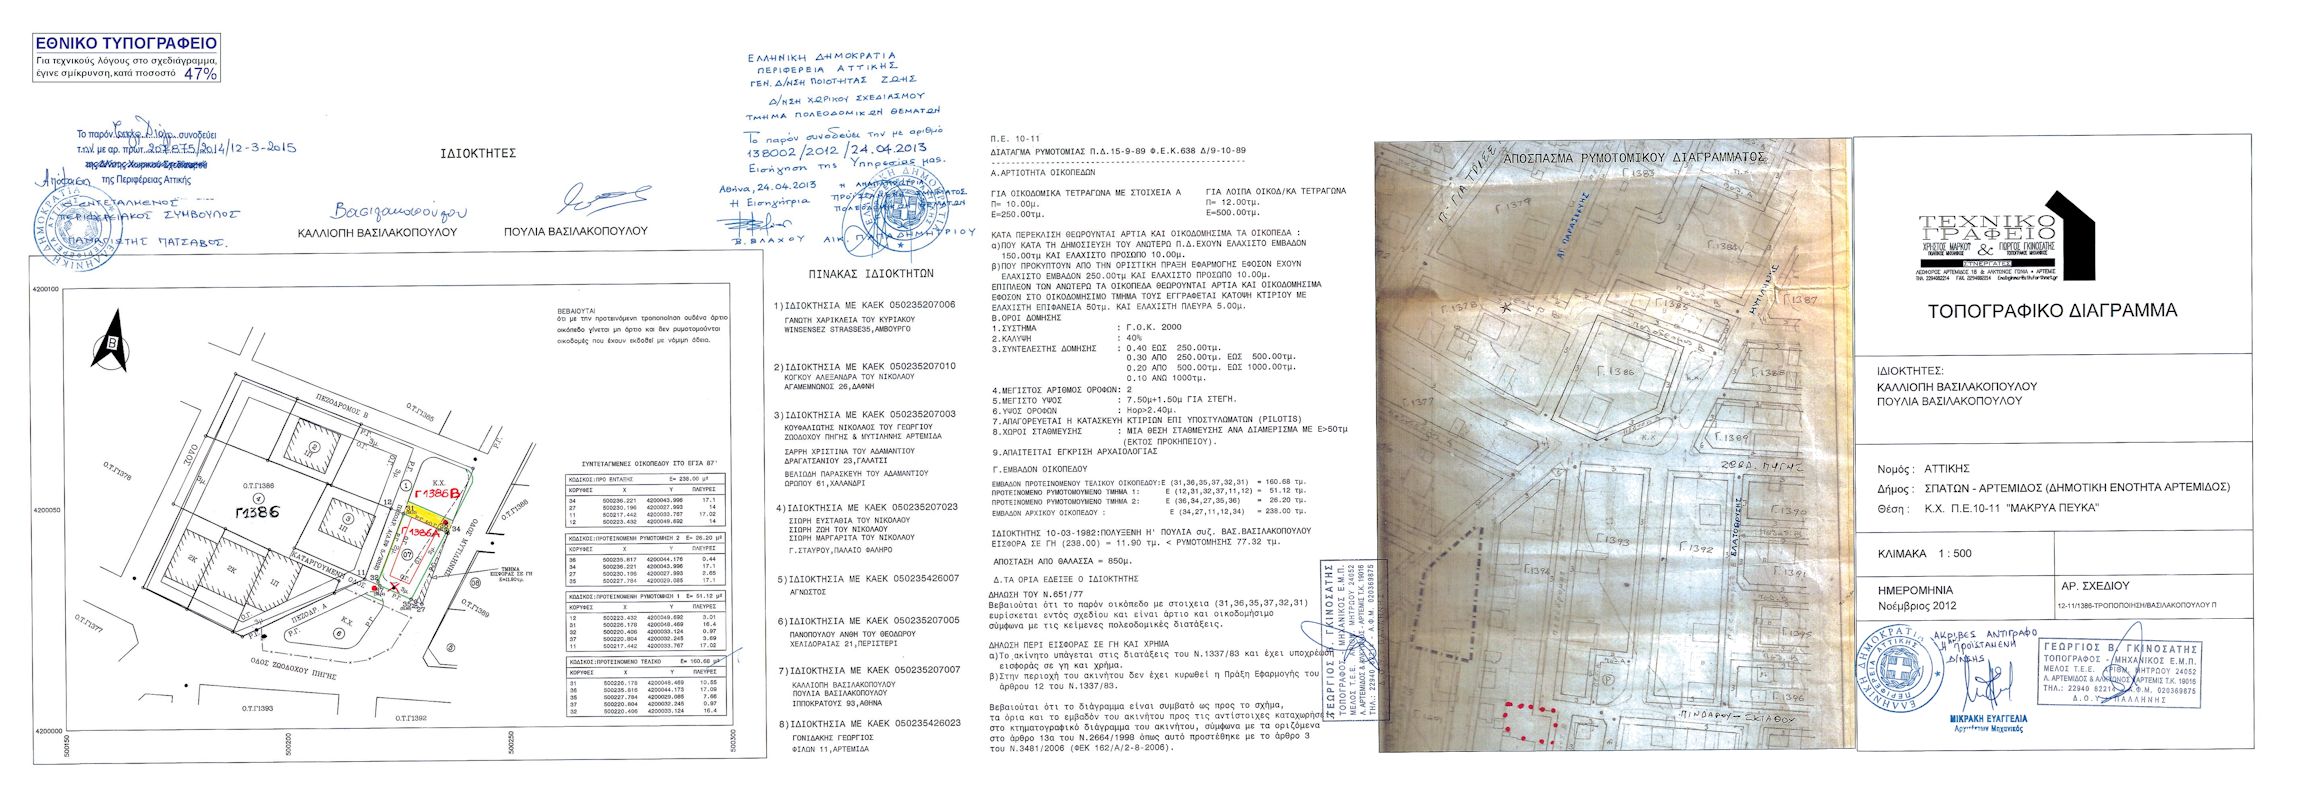 ΕΘΝΙΚΟ ΤΥΠΟΓΡΑΦΕΙΟ
Για τεχνικούς λόγους στο σχεδιάγραμμα,
έγινε σμίκρυνση, κατά ποσοστό 47%
Το παρόν συνοδεύει
τ.ην με αρ. πρωτ. 207875/2014/12-3-2015
της Δ/νσης Χωρικού Σχεδιασμού
της Περιφέρειας Αττικής
Απόφαση
Ο ΕΝΤΕΤΑΛΜΕΝΟΣ
ΠΕΡΙΦΕΡΕΙΑΚΟΣ ΣΥΜΒΟΥΛΟΣ
ΠΑΝΑΓΙΩΤΗΣ ΠΑΤΣΑΒΟΣ.
ΙΔΙΟΚΤΗΤΕΣ
Βασιλακοπούλου
ΚΑΛΛΙΟΠΗ ΒΑΣΙΛΑΚΟΠΟΥΛΟΥ
ΠΟΥΛΙΑ ΒΑΣΙΛΑΚΟΠΟΥΛΟΥ
ΕΛΛΗΝΙΚΗ ΔΗΜΟΚΡΑΤΙΑ
ΠΕΡΙΦΕΡΕΙΑ ΑΤΤΙΚΗΣ
ΓΕΝ. Δ/ΝΣΗ ΠΟΙΟΤΗΤΑΣ ΖΩΗΣ
Δ/ΝΣΗ ΧΩΡΙΚΟΥ ΣΧΕΔΙΑΣΜΟΥ
ΤΜΗΜΑ ΠΟΛΕΟΔΟΜΙΚΩΝ ΘΕΜΑΤΩΝ
Το παρόν συνοδεύει την με αριθμό
138002/2012/24.04.2013
Εισήγηση της Υπηρεσίας μας.
Αθήνα, 24.04.2013
Η Εισηγήτρια
Β. ΒΛΑΧΟΥ
ΑΙΚ. ΠΑΠΑΔΗΜΗΤΡΙΟΥ
4200100
4200050
4200000
500150
500200
500250
500300
Β
ΒΕΒΑΙΟΥΤΑΙ
ότι με την προτεινόμενη τροποποίηση ουδένα άρτιο
οικόπεδο γίνεται μη άρτιο και δεν ρυμοτομούνται
οικοδομές που έχουν εκδοθεί με νόμιμη άδεια.
ΠΕΖΟΔΡΟΜΟΣ Β
Ο.Τ.Γ1385
Ο.Τ.Γ1387
Ο.Τ.Γ1388
Ο.Τ.Γ1389
Ο.Τ.Γ1377
Ο.Τ.Γ1393
Ο.Τ.Γ1392
Ο.Τ.Γ1386
Γ1386
Γ1386Β
Γ1386Α
Κ.Χ
ΚΑΤΑΡΓΟΥΜΕΝΗ ΟΔΟΣ
ΠΕΖΟΔΡ. Α
Κ.Χ
ΟΔΟΣ ΖΩΟΔΟΧΟΥ ΠΗΓΗΣ
ΟΔΟΣ ΜΥΤΙΛΗΝΗΣ
ΤΜΗΜΑ
ΕΙΣΦΟΡΑΣ ΣΕ ΓΗ
Ε=11.90τμ.
ΣΥΝΤΕΤΑΓΜΕΝΕΣ ΟΙΚΟΠΕΔΟΥ ΣΤΟ ΕΓΣΑ 87'
ΚΩΔΙΚΟΣ:ΠΡΟ ΕΝΤΑΞΗΣ Ε= 238.00 μ²
ΚΟΡΥΦΕΣ Χ Υ ΠΛΕΥΡΕΣ
34 500236.221 4200043.996 17.1
27 500230.196 4200027.993 14
11 500217.442 4200033.767 17.02
12 500223.432 4200049.692 14
ΚΩΔΙΚΟΣ:ΠΡΟΤΕΙΝΟΜΕΝΗ ΡΥΜΟΤΟΜΗΣΗ 2 Ε= 26.20 μ²
ΚΟΡΥΦΕΣ Χ Υ ΠΛΕΥΡΕΣ
36 500235.817 4200044.176 0.44
34 500236.221 4200043.996 17.1
27 500230.196 4200027.993 2.65
35 500227.784 4200029.085 17.1
ΚΩΔΙΚΟΣ:ΠΡΟΤΕΙΝΟΜΕΝΗ ΡΥΜΟΤΟΜΗΣΗ 1 Ε= 51.12 μ²
ΚΟΡΥΦΕΣ Χ Υ ΠΛΕΥΡΕΣ
12 500223.432 4200049.692 3.01
31 500226.178 4200048.469 16.4
32 500220.406 4200033.124 0.97
37 500220.804 4200032.245 3.69
11 500217.442 4200033.767 17.02
ΚΩΔΙΚΟΣ:ΠΡΟΤΕΙΝΟΜΕΝΟ ΤΕΛΙΚΟ Ε= 160.68 μ²
ΚΟΡΥΦΕΣ Χ Υ ΠΛΕΥΡΕΣ
31 500226.178 4200048.469 10.55
36 500235.816 4200044.173 17.09
35 500227.784 4200029.085 7.66
37 500220.804 4200032.245 0.97
32 500220.406 4200033.124 16.4
ΠΙΝΑΚΑΣ ΙΔΙΟΚΤΗΤΩΝ
1)ΙΔΙΟΚΤΗΣΙΑ ΜΕ ΚΑΕΚ 050235207006
ΓΑΝΩΤΗ ΧΑΡΙΚΛΕΙΑ ΤΟΥ ΚΥΡΙΑΚΟΥ
WINSENSEZ STRASSE35,ΑΜΒΟΥΡΓΟ
2)ΙΔΙΟΚΤΗΣΙΑ ΜΕ ΚΑΕΚ 050235207010
ΚΟΓΚΟΥ ΑΛΕΞΑΝΔΡΑ ΤΟΥ ΝΙΚΟΛΑΟΥ
ΑΓΑΜΕΜΝΩΝΟΣ 26,ΔΑΦΝΗ
3)ΙΔΙΟΚΤΗΣΙΑ ΜΕ ΚΑΕΚ 050235207003
ΚΟΥΦΑΛΙΩΤΗΣ ΝΙΚΟΛΑΟΣ ΤΟΥ ΓΕΩΡΓΙΟΥ
ΖΩΟΔΟΧΟΥ ΠΗΓΗΣ & ΜΥΤΙΛΗΝΗΣ ΑΡΤΕΜΙΔΑ
ΣΑΡΡΗ ΧΡΙΣΤΙΝΑ ΤΟΥ ΑΔΑΜΑΝΤΙΟΥ
ΔΡΑΓΑΤΣΑΝΙΟΥ 23,ΓΑΛΑΤΣΙ
ΒΕΛΙΩΔΗ ΠΑΡΑΣΚΕΥΗ ΤΟΥ ΑΔΑΜΑΝΤΙΟΥ
ΩΡΩΠΟΥ 61,ΧΑΛΑΝΔΡΙ
4)ΙΔΙΟΚΤΗΣΙΑ ΜΕ ΚΑΕΚ 050235207023
ΣΙΩΡΗ ΕΥΣΤΑΘΙΑ ΤΟΥ ΝΙΚΟΛΑΟΥ
ΣΙΩΡΗ ΖΩΗ ΤΟΥ ΝΙΚΟΛΑΟΥ
ΣΙΩΡΗ ΜΑΡΓΑΡΙΤΑ ΤΟΥ ΝΙΚΟΛΑΟΥ
Γ.ΣΤΑΥΡΟΥ,ΠΑΛΑΙΟ ΦΑΛΗΡΟ
5)ΙΔΙΟΚΤΗΣΙΑ ΜΕ ΚΑΕΚ 050235426007
ΑΓΝΩΣΤΟΣ
6)ΙΔΙΟΚΤΗΣΙΑ ΜΕ ΚΑΕΚ 050235207005
ΠΑΝΟΠΟΥΛΟΥ ΑΝΘΗ ΤΟΥ ΘΕΟΔΩΡΟΥ
ΧΕΛΙΔΟΡΑΙΑΣ 21,ΠΕΡΙΣΤΕΡΙ
7)ΙΔΙΟΚΤΗΣΙΑ ΜΕ ΚΑΕΚ 050235207007
ΚΑΛΛΙΟΠΗ ΒΑΣΙΛΑΚΟΠΟΥΛΟΥ
ΠΟΥΛΙΑ ΒΑΣΙΛΑΚΟΠΟΥΛΟΥ
ΙΠΠΟΚΡΑΤΟΥΣ 93,ΑΘΗΝΑ
8)ΙΔΙΟΚΤΗΣΙΑ ΜΕ ΚΑΕΚ 050235426023
ΓΟΝΙΔΑΚΗΣ ΓΕΩΡΓΙΟΣ
ΦΙΛΩΝ 11,ΑΡΤΕΜΙΔΑ
Π.Ε. 10-11
ΔΙΑΤΑΓΜΑ ΡΥΜΟΤΟΜΙΑΣ Π.Δ.15-9-89 Φ.Ε.Κ.638 Δ/9-10-89
Α.ΑΡΤΙΟΤΗΤΑ ΟΙΚΟΠΕΔΩΝ
ΓΙΑ ΟΙΚΟΔΟΜΙΚΑ ΤΕΤΡΑΓΩΝΑ ΜΕ ΣΤΟΙΧΕΙΑ Α ΓΙΑ ΛΟΙΠΑ ΟΙΚΟΔ/ΚΑ ΤΕΤΡΑΓΩΝΑ
Π= 10.00μ. Π= 12.00τμ.
Ε=250.00τμ. Ε=500.00τμ.
ΚΑΤΑ ΠΕΡΕΚΛΙΣΗ ΘΕΩΡΟΥΝΤΑΙ ΑΡΤΙΑ ΚΑΙ ΟΙΚΟΔΟΜΗΣΙΜΑ ΤΑ ΟΙΚΟΠΕΔΑ :
α)ΠΟΥ ΚΑΤΑ ΤΗ ΔΗΜΟΣΙΕΥΣΗ ΤΟΥ ΑΝΩΤΕΡΟ Π.Δ.ΕΧΟΥΝ ΕΛΑΧΙΣΤΟ ΕΜΒΑΔΟΝ
150.00τμ ΚΑΙ ΕΛΑΧΙΣΤΟ ΠΡΟΣΩΠΟ 10.00μ.
β)ΠΟΥ ΠΡΟΚΥΠΤΟΥΝ ΑΠΟ ΤΗΝ ΟΡΙΣΤΙΚΗ ΠΡΑΞΗ ΕΦΑΡΜΟΓΗΣ ΕΦΟΣΟΝ ΕΧΟΥΝ
ΕΛΑΧΙΣΤΟ ΕΜΒΑΔΟΝ 250.00τμ ΚΑΙ ΕΛΑΧΙΣΤΟ ΠΡΟΣΩΠΟ 10.00μ.
ΕΠΙΠΛΕΟΝ ΤΩΝ ΑΝΩΤΕΡΩ ΤΑ ΟΙΚΟΠΕΔΑ ΘΕΩΡΟΥΝΤΑΙ ΑΡΤΙΑ ΚΑΙ ΟΙΚΟΔΟΜΗΣΙΜΑ
ΕΦΟΣΟΝ ΣΤΟ ΟΙΚΟΔΟΜΗΣΙΜΟ ΤΜΗΜΑ ΤΟΥΣ ΕΓΓΡΑΦΕΤΑΙ ΚΑΤΟΨΗ ΚΤΙΡΙΟΥ ΜΕ
ΕΛΑΧΙΣΤΗ ΕΠΙΦΑΝΕΙΑ 50τμ. ΚΑΙ ΕΛΑΧΙΣΤΗ ΠΛΕΥΡΑ 5.00μ.
Β.ΟΡΟΙ ΔΟΜΗΣΗΣ
1.ΣΥΣΤΗΜΑ : Γ.Ο.Κ. 2000
2.ΚΑΛΥΨΗ : 40%
3.ΣΥΝΤΕΛΕΣΤΗΣ ΔΟΜΗΣΗΣ : 0.40 ΕΩΣ 250.00τμ.
0.30 ΑΠΟ 250.00τμ. ΕΩΣ 500.00τμ.
0.20 ΑΠΟ 500.00τμ. ΕΩΣ 1000.00τμ.
0.10 ΑΝΩ 1000τμ.
4.ΜΕΓΙΣΤΟΣ ΑΡΙΘΜΟΣ ΟΡΟΦΩΝ: 2
5.ΜΕΓΙΣΤΟ ΥΨΟΣ : 7.50μ+1.50μ ΓΙΑ ΣΤΕΓΗ.
6.ΥΨΟΣ ΟΡΟΦΩΝ : Ηορ>2.40μ.
7.ΑΠΑΓΟΡΕΥΕΤΑΙ Η ΚΑΤΑΣΚΕΥΗ ΚΤΙΡΙΩΝ ΕΠΙ ΥΠΟΣΤΥΛΩΜΑΤΩΝ (PILOTIS)
8.ΧΩΡΟΙ ΣΤΑΘΜΕΥΣΗΣ : ΜΙΑ ΘΕΣΗ ΣΤΑΘΜΕΥΣΗΣ ΑΝΑ ΔΙΑΜΕΡΙΣΜΑ ΜΕ Ε>50τμ
(ΕΚΤΟΣ ΠΡΟΚΗΠΕΙΟΥ).
9.ΑΠΑΙΤΕΙΤΑΙ ΕΓΚΡΙΣΗ ΑΡΧΑΙΟΛΟΓΙΑΣ
Γ.ΕΜΒΑΔΟΝ ΟΙΚΟΠΕΔΟΥ
ΕΜΒΑΔΟΝ ΠΡΟΤΕΙΝΟΜΕΝΟΥ ΤΕΛΙΚΟΥ ΟΙΚΟΠΕΔΟΥ:Ε (31,36,35,37,32,31) = 160.68 τμ.
ΠΡΟΤΕΙΝΟΜΕΝΟ ΡΥΜΟΤΟΜΟΥΜΕΝΟ ΤΜΗΜΑ 1: Ε (12,31,32,37,11,12) = 51.12 τμ.
ΠΡΟΤΕΙΝΟΜΕΝΟ ΡΥΜΟΤΟΜΟΥΜΕΝΟ ΤΜΗΜΑ 2: Ε (36,34,27,35,36) = 26.20 τμ.
ΕΜΒΑΔΟΝ ΑΡΧΙΚΟΥ ΟΙΚΟΠΕΔΟΥ : Ε (34,27,11,12,34) = 238.00 τμ.
ΙΔΙΟΚΤΗΤΗΣ 10-03-1982:ΠΟΛΥΞΕΝΗ Η' ΠΟΥΛΙΑ συζ. ΒΑΣ.ΒΑΣΙΛΑΚΟΠΟΥΛΟΥ
ΕΙΣΦΟΡΑ ΣΕ ΓΗ (238.00) = 11.90 τμ. < ΡΥΜΟΤΟΜΗΣΗΣ 77.32 τμ.
ΑΠΟΣΤΑΣΗ ΑΠΟ ΘΑΛΑΣΣΑ = 850μ.
Δ.ΤΑ ΟΡΙΑ ΕΔΕΙΞΕ Ο ΙΔΙΟΚΤΗΤΗΣ
ΔΗΛΩΣΗ ΤΟΥ Ν.651/77
Βεβαιούται ότι το παρόν οικόπεδο με στοιχεία (31,36,35,37,32,31)
ευρίσκεται εντός σχεδίου και είναι άρτιο και οικοδομήσιμο
σύμφωνα με τις κείμενες πολεοδομικές διατάξεις.
ΔΗΛΩΣΗ ΠΕΡΙ ΕΙΣΦΟΡΑΣ ΣΕ ΓΗ ΚΑΙ ΧΡΗΜΑ
α)Το ακίνητο υπάγεται στις διατάξεις του Ν.1337/83 και έχει υποχρέωση
εισφοράς σε γη και χρήμα.
β)Στην περιοχή του ακινήτου δεν έχει κυρωθεί η Πράξη Εφαρμογής του
άρθρου 12 του Ν.1337/83.
Βεβαιούται ότι το διάγραμμα είναι συμβατό ως προς το σχήμα,
τα όρια και το εμβαδόν του ακινήτου προς τις αντίστοιχες καταχωρήσεις
στο κτηματογραφικό διάγραμμα του ακινήτου, σύμφωνα με τα οριζόμενα
στο άρθρο 13α του Ν.2664/1998 όπως αυτό προστέθηκε με το άρθρο 3
του Ν.3481/2006 (ΦΕΚ 162/Α/2-8-2006).
ΓΕΩΡΓΙΟΣ Β. ΓΚΙΝΟΣΑΤΗΣ
ΤΟΠΟΓΡΑΦΟΣ - ΜΗΧΑΝΙΚΟΣ Ε.Μ.Π.
ΑΠΟΣΠΑΣΜΑ ΡΥΜΟΤΟΜΙΚΟΥ ΔΙΑΓΡΑΜΜΑΤΟΣ
Γ.1383
Γ.1379
ΑΓ. ΠΑΡΑΣΚΕΥΗΣ
Γ.1384
ΜΥΤΙΛΗΝΗΣ
Γ.1378
Γ.1385
Γ.1387
Γ.1386
Γ.1388
Κ.Χ.
Γ.1389
ΖΩΟΔ. ΠΗΓΗΣ
Γ.1390
Γ.1393
Γ.1392
Γ.1394
Γ.1391
Γ.1395
Γ.1396
ΠΙΝΔΑΡΟΥ - ΣΚΙΑΘΟΥ
ΤΕΧΝΙΚΟ
ΓΡΑΦΕΙΟ
ΧΡΗΣΤΟΣ ΜΑΡΚΟΥ & ΓΙΩΡΓΟΣ ΓΚΙΝΟΣΑΤΗΣ
ΣΥΝΕΡΓΑΤΕΣ
ΛΕΩΦΟΡΟΣ ΑΡΤΕΜΙΔΟΣ 18 & ΑΛΚΥΟΝΟΣ ΓΩΝΙΑ • ΑΡΤΕΜΙΣ
ΤΟΠΟΓΡΑΦΙΚΟ ΔΙΑΓΡΑΜΜΑ
ΙΔΙΟΚΤΗΤΕΣ:
ΚΑΛΛΙΟΠΗ ΒΑΣΙΛΑΚΟΠΟΥΛΟΥ
ΠΟΥΛΙΑ ΒΑΣΙΛΑΚΟΠΟΥΛΟΥ
Νομός : ΑΤΤΙΚΗΣ
Δήμος : ΣΠΑΤΩΝ - ΑΡΤΕΜΙΔΟΣ (ΔΗΜΟΤΙΚΗ ΕΝΟΤΗΤΑ ΑΡΤΕΜΙΔΟΣ)
Θέση : Κ.Χ. Π.Ε.10-11 "ΜΑΚΡΥΑ ΠΕΥΚΑ"
ΚΛΙΜΑΚΑ 1 : 500
ΗΜΕΡΟΜΗΝΙΑ
Νοέμβριος 2012
ΑΡ. ΣΧΕΔΙΟΥ
12-11/1386-ΤΡΟΠΟΠΟΙΗΣΗ/ΒΑΣΙΛΑΚΟΠΟΥΛΟΥ Π
ΑΚΡΙΒΕΣ ΑΝΤΙΓΡΑΦΟ
Η ΠΡΟΪΣΤΑΜΕΝΗ
Δ/ΝΣΗΣ
ΜΙΚΡΑΚΗ ΕΥΑΓΓΕΛΙΑ
Αρχιτέκτων Μηχανικός
ΓΕΩΡΓΙΟΣ Β. ΓΚΙΝΟΣΑΤΗΣ
ΤΟΠΟΓΡΑΦΟΣ - ΜΗΧΑΝΙΚΟΣ Ε.Μ.Π.
ΜΕΛΟΣ Τ.Ε.Ε. ΑΡΙΘΜ. ΜΗΤΡΩΟΥ 24052
Λ. ΑΡΤΕΜΙΔΟΣ & ΑΛΚΥΟΝΟΣ ΑΡΤΕΜΙΣ Τ.Κ. 19016
ΤΗΛ.: 22940 82214 - Α.Φ.Μ. 020369875
Δ.Ο.Υ. ΠΑΛΛΗΝΗΣ